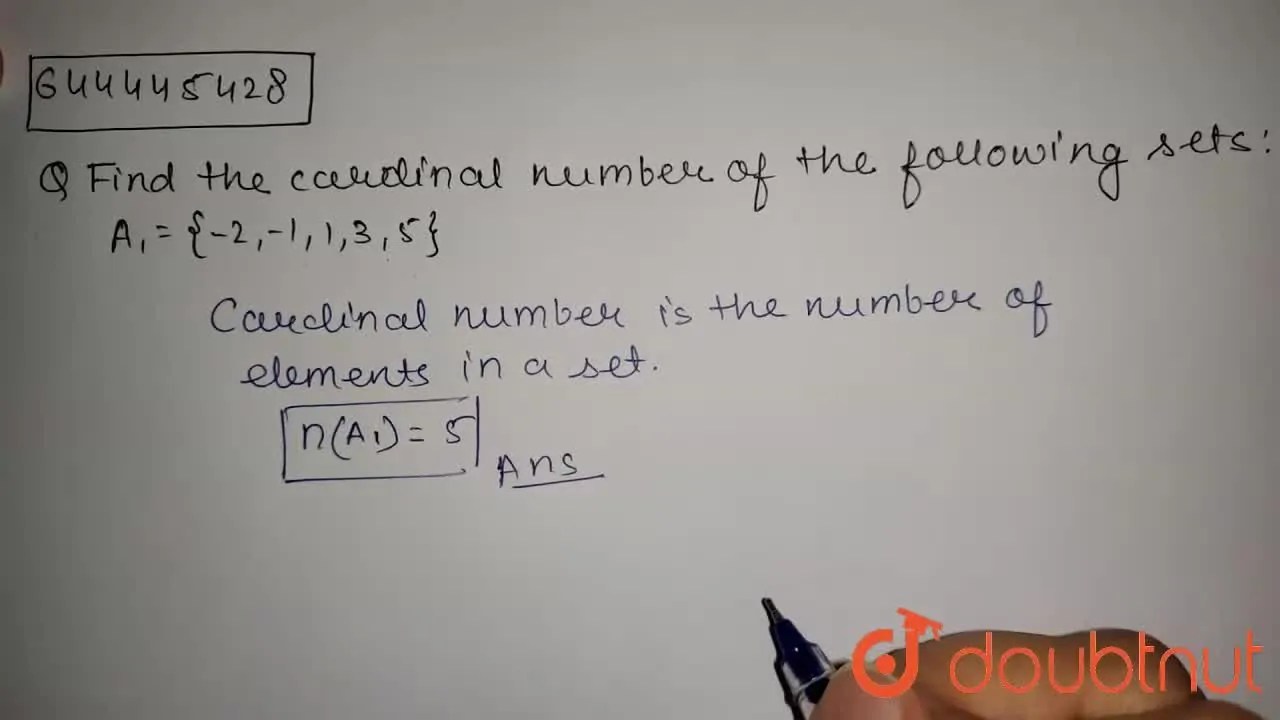 644445428
Q Find the cardinal number of the following sets:
A₁ = {-2, -1, 1, 3, 5}
Cardinal number is the number of
elements in a set.
n(A₁) = 5
Ans
doubtnut